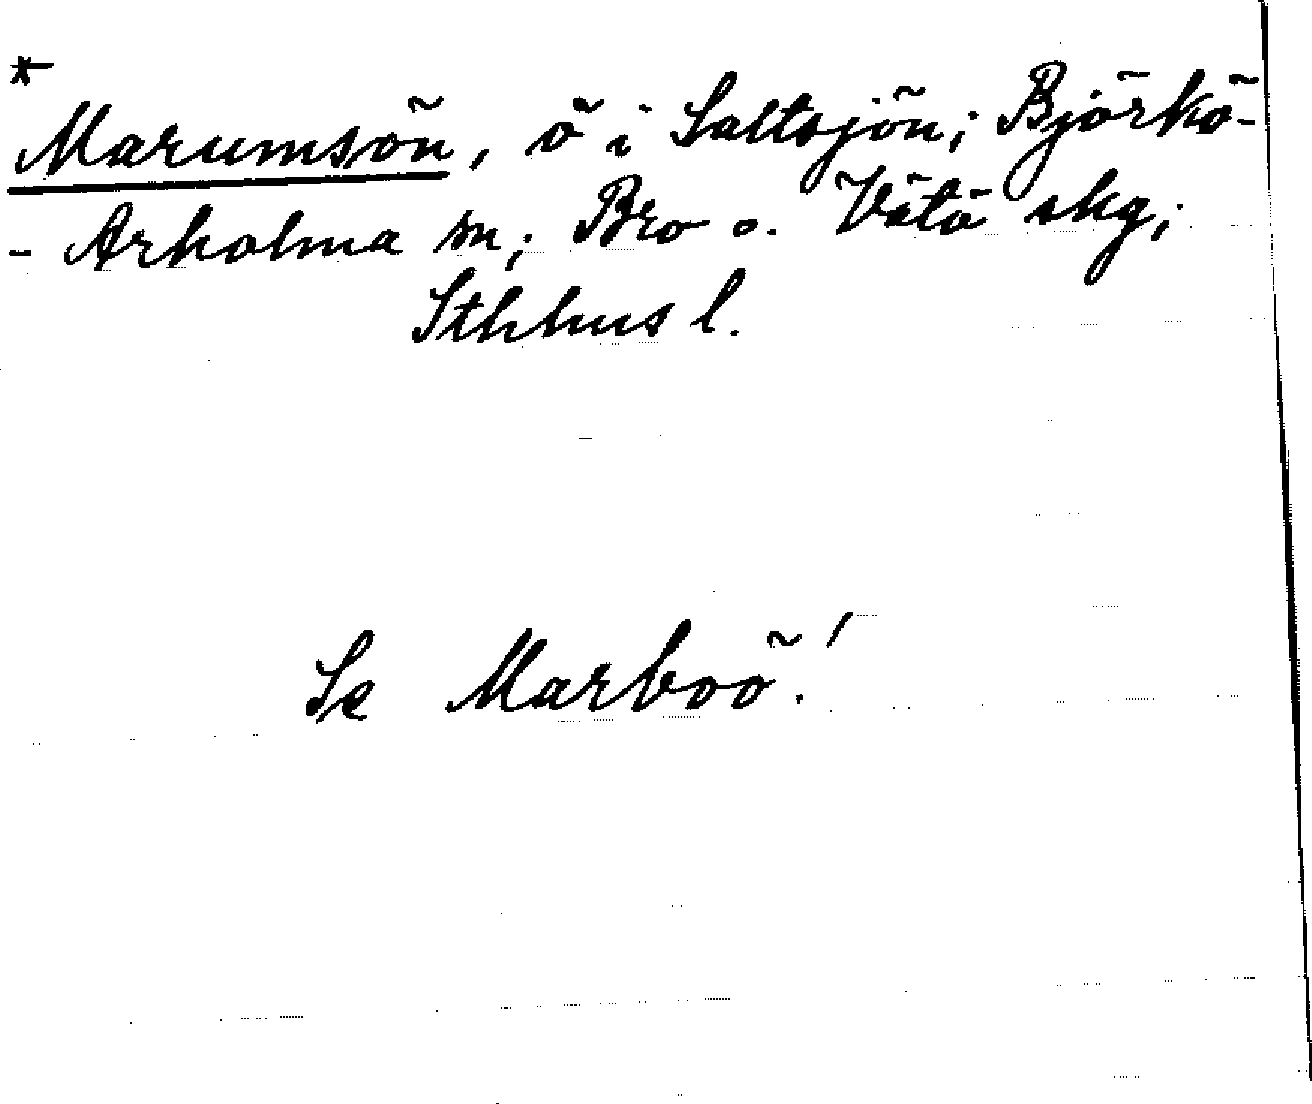 *
Marumsön, ö i Saltsjön; Björkö-
- Arholma sn; Bro o. Vätö skg;
Sthhms l.
Se Marboö!